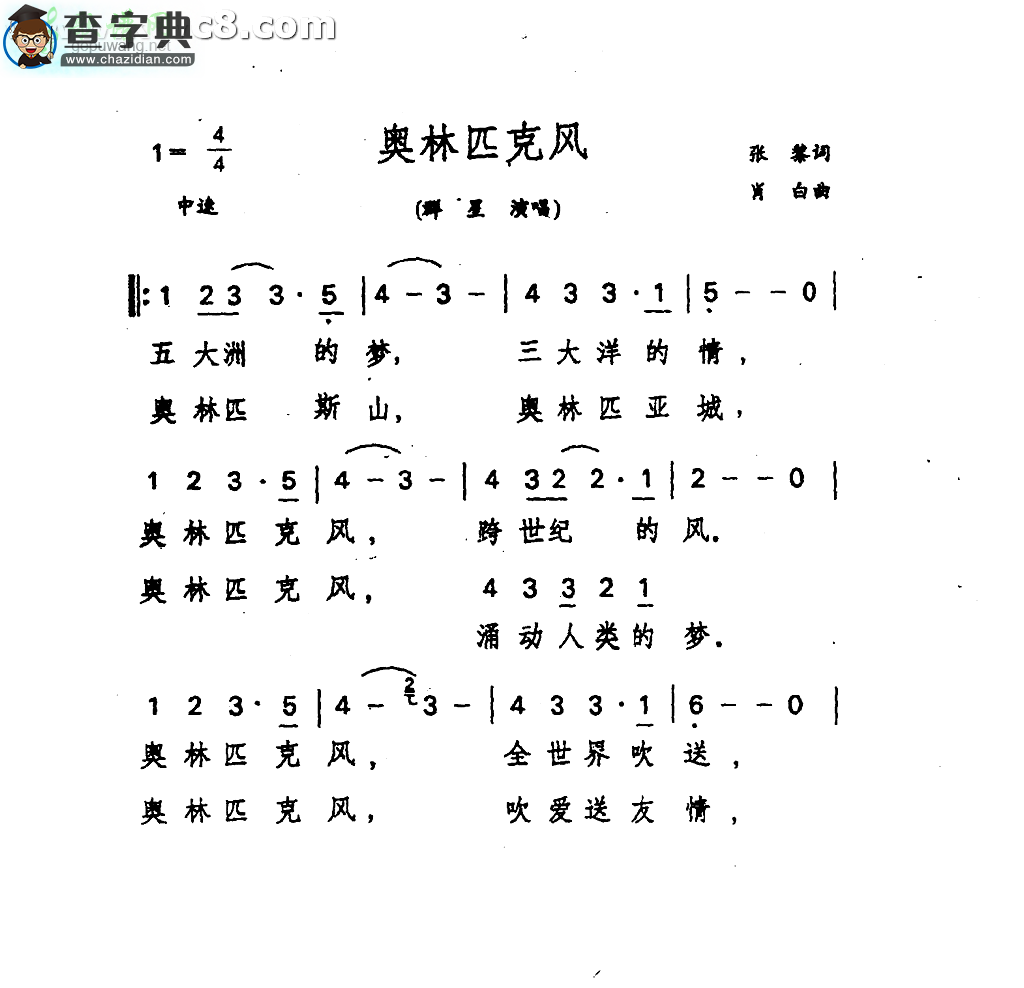 查字典
c8.com
gepuwang.net
www.chazidian.com
奥林匹克风
1= 4/4
张 黎词
中速
(群 星 演唱)
肖 白曲
‖: 1 2 3 3 · 5 | 4 – 3 – | 4 3 3 · 1 | 5 – – 0 |
五 大洲 的 梦, 三 大 洋 的 情,
奥 林匹 斯 山, 奥 林 匹 亚 城,
1 2 3 · 5 | 4 – 3 – | 4 3 2 2 · 1 | 2 – – 0 |
奥 林 匹 克 风, 跨 世纪 的 风.
奥 林 匹 克 风, 4 3 3 2 1
涌 动 人 类 的 梦.
1 2 3 · 5 | 4 – 2 3 – | 4 3 3 · 1 | 6 – – 0 |
奥 林 匹 克 风, 全 世 界 吹 送,
奥 林 匹 克 风, 吹 爱 送 友 情,